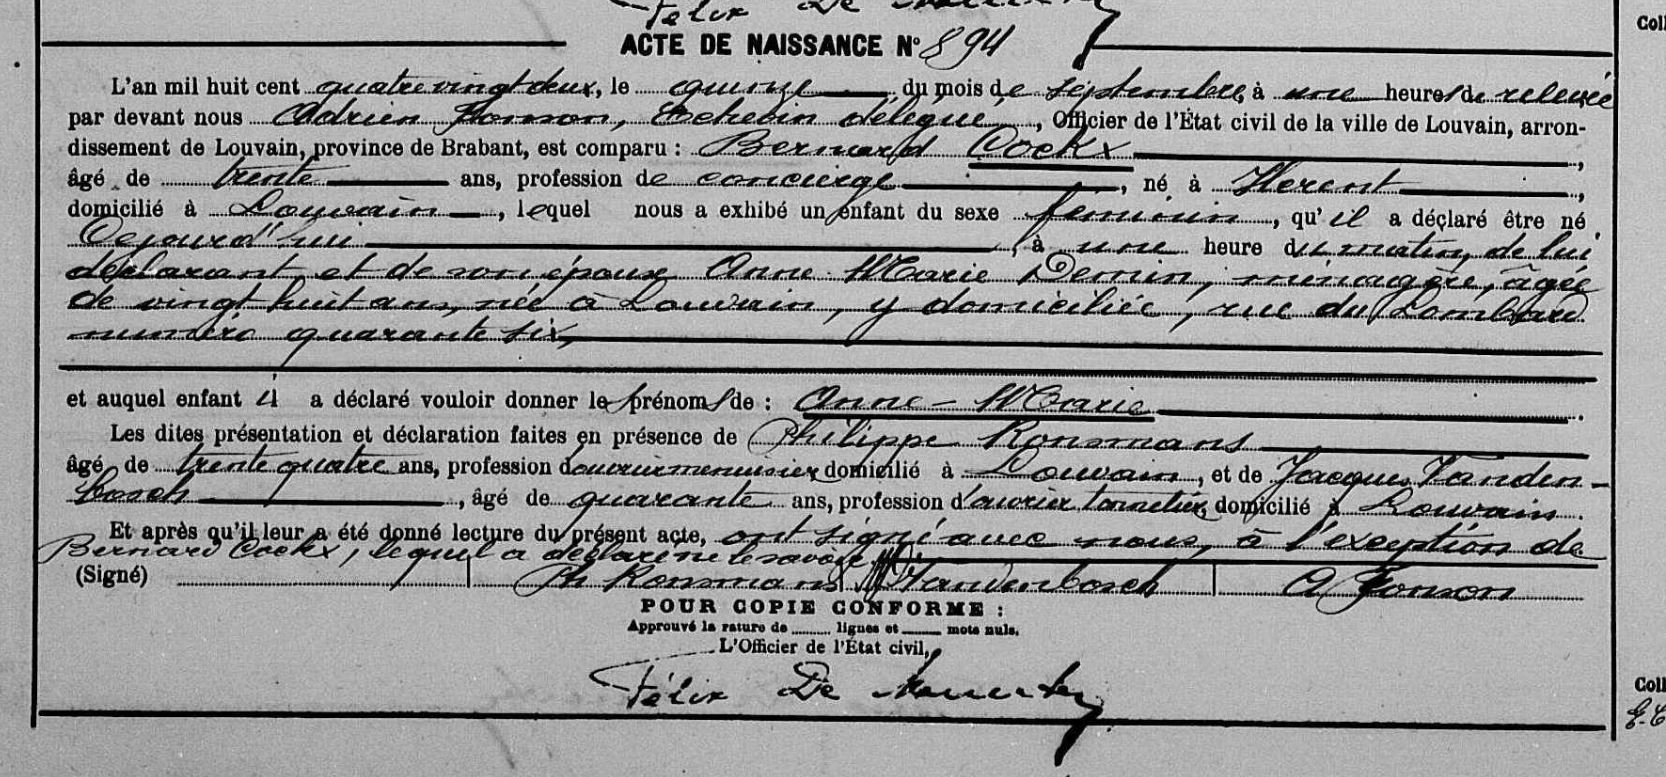 Félix De
ACTE DE NAISSANCE N° 894
Coll
L'an mil huit cent quatre vingt deux, le quinze du mois de septembre, à une heure de relevée
par devant nous Adrien Ponson, Echevin délégué, Officier de l'État civil de la ville de Louvain, arron-
dissement de Louvain, province de Brabant, est comparu : Bernard Cockx,
âgé de trente ans, profession de concierge, né à Herent,
domicilié à Louvain, lequel nous a exhibé un enfant du sexe féminin, qu'il a déclaré être né
Cejourd'hui, à une heure du matin, de lui
déclarant, et de son épouse Anne Marie Demin, ménagère, âgée
de vingt huit ans, née à Louvain, y domiciliée, rue du Lombard
numéro quarante six,
et auquel enfant il a déclaré vouloir donner les prénoms de : Anne-Marie.
Les dites présentation et déclaration faites en présence de Philippe Ronsmans
âgé de trente quatre ans, profession d'ouvrier menuisier domicilié à Louvain, et de Jacques Vanden-
bosch, âgé de quarante ans, profession d'ouvrier tonnelier, domicilié à Louvain.
Et après qu'il leur a été donné lecture du présent acte, ont signé avec nous, à l'exception de
Bernard Cockx, lequel a déclaré ne le savoir.
(Signé) Ph Ronsmans Vandenbosch A Ponson
POUR COPIE CONFORME :
Approuvé la rature de lignes et mots nuls.
L'Officier de l'État civil,
Félix De
Coll